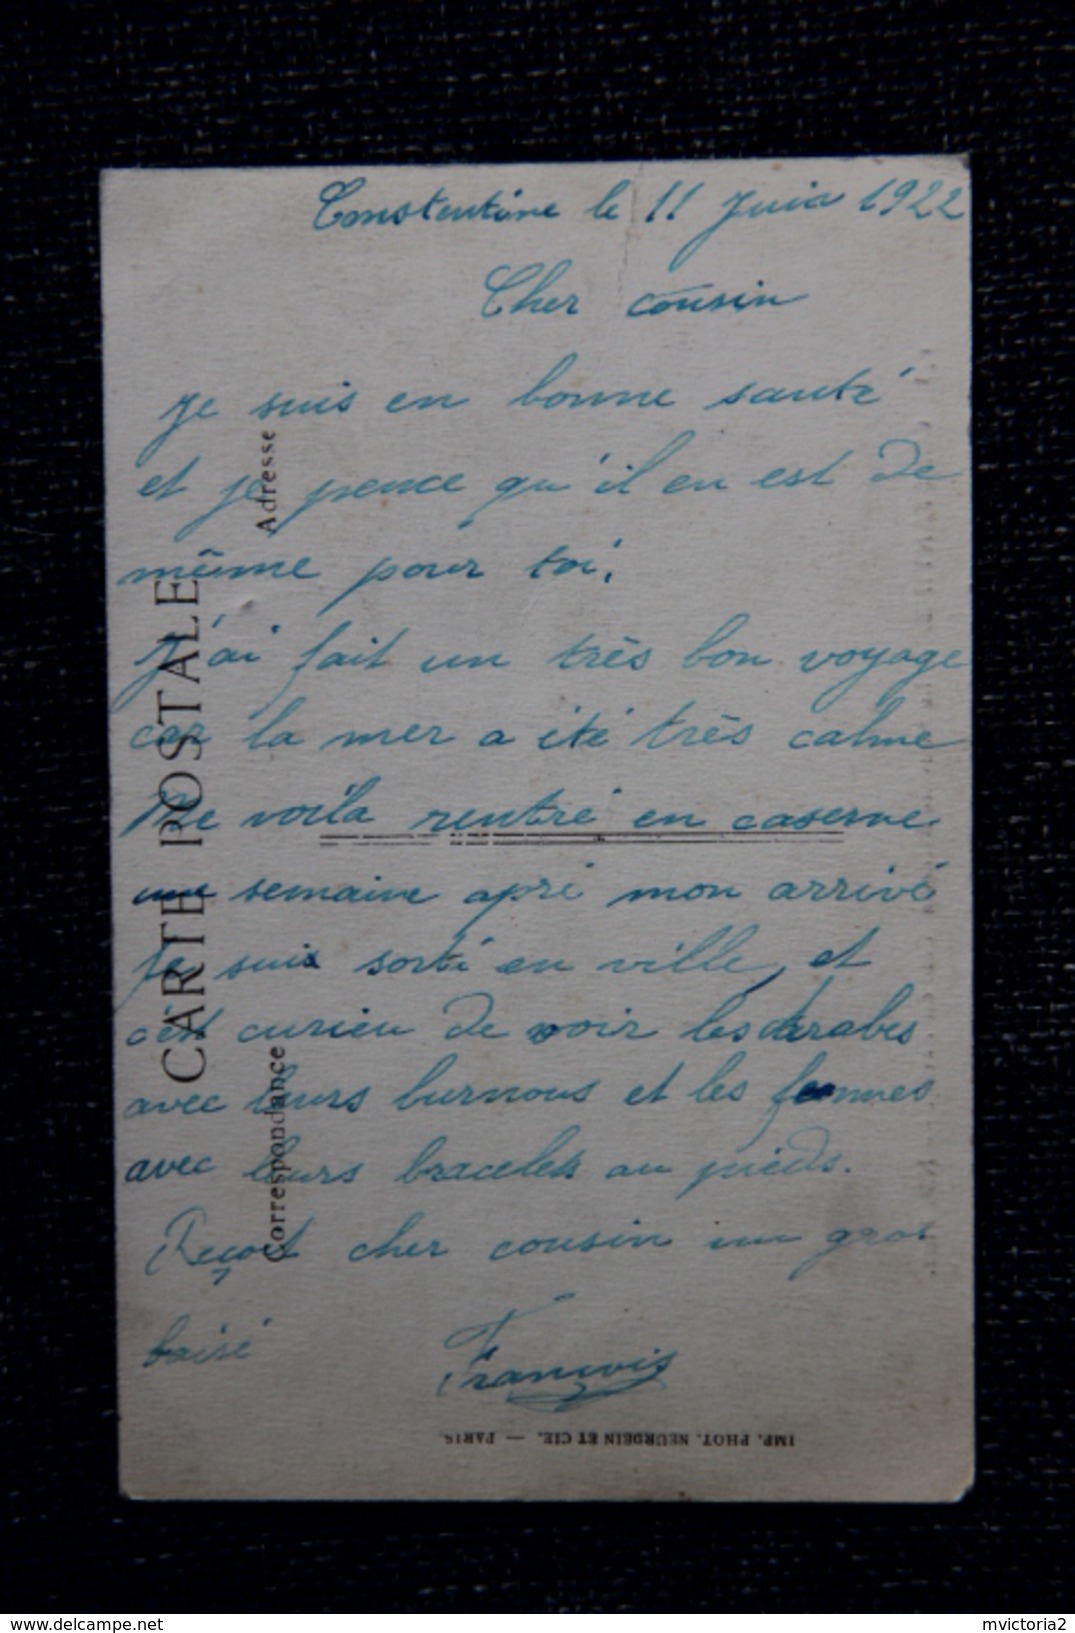 Constentine le 11 Juin 1922
Cher cousin
Je suis en bonne santé
et je pence qu'il en est de
même pour toi.
J'ai fait un très bon voyage
car la mer a été très calme
Me voila rentré en caserne
une semaine apré mon arrivé
Je suis sorti en ville, et
c'est curieu de voir les Arabes
avec leurs burnous et les femmes
avec leurs bracelets au pieds.
Reçoit cher cousin un gros
baisé
François
CARTE POSTALE
Correspondance
Adresse
IMP. PHOT. NEURDEIN ET CIE. — PARIS.
www.delcampe.net
mvictoria2